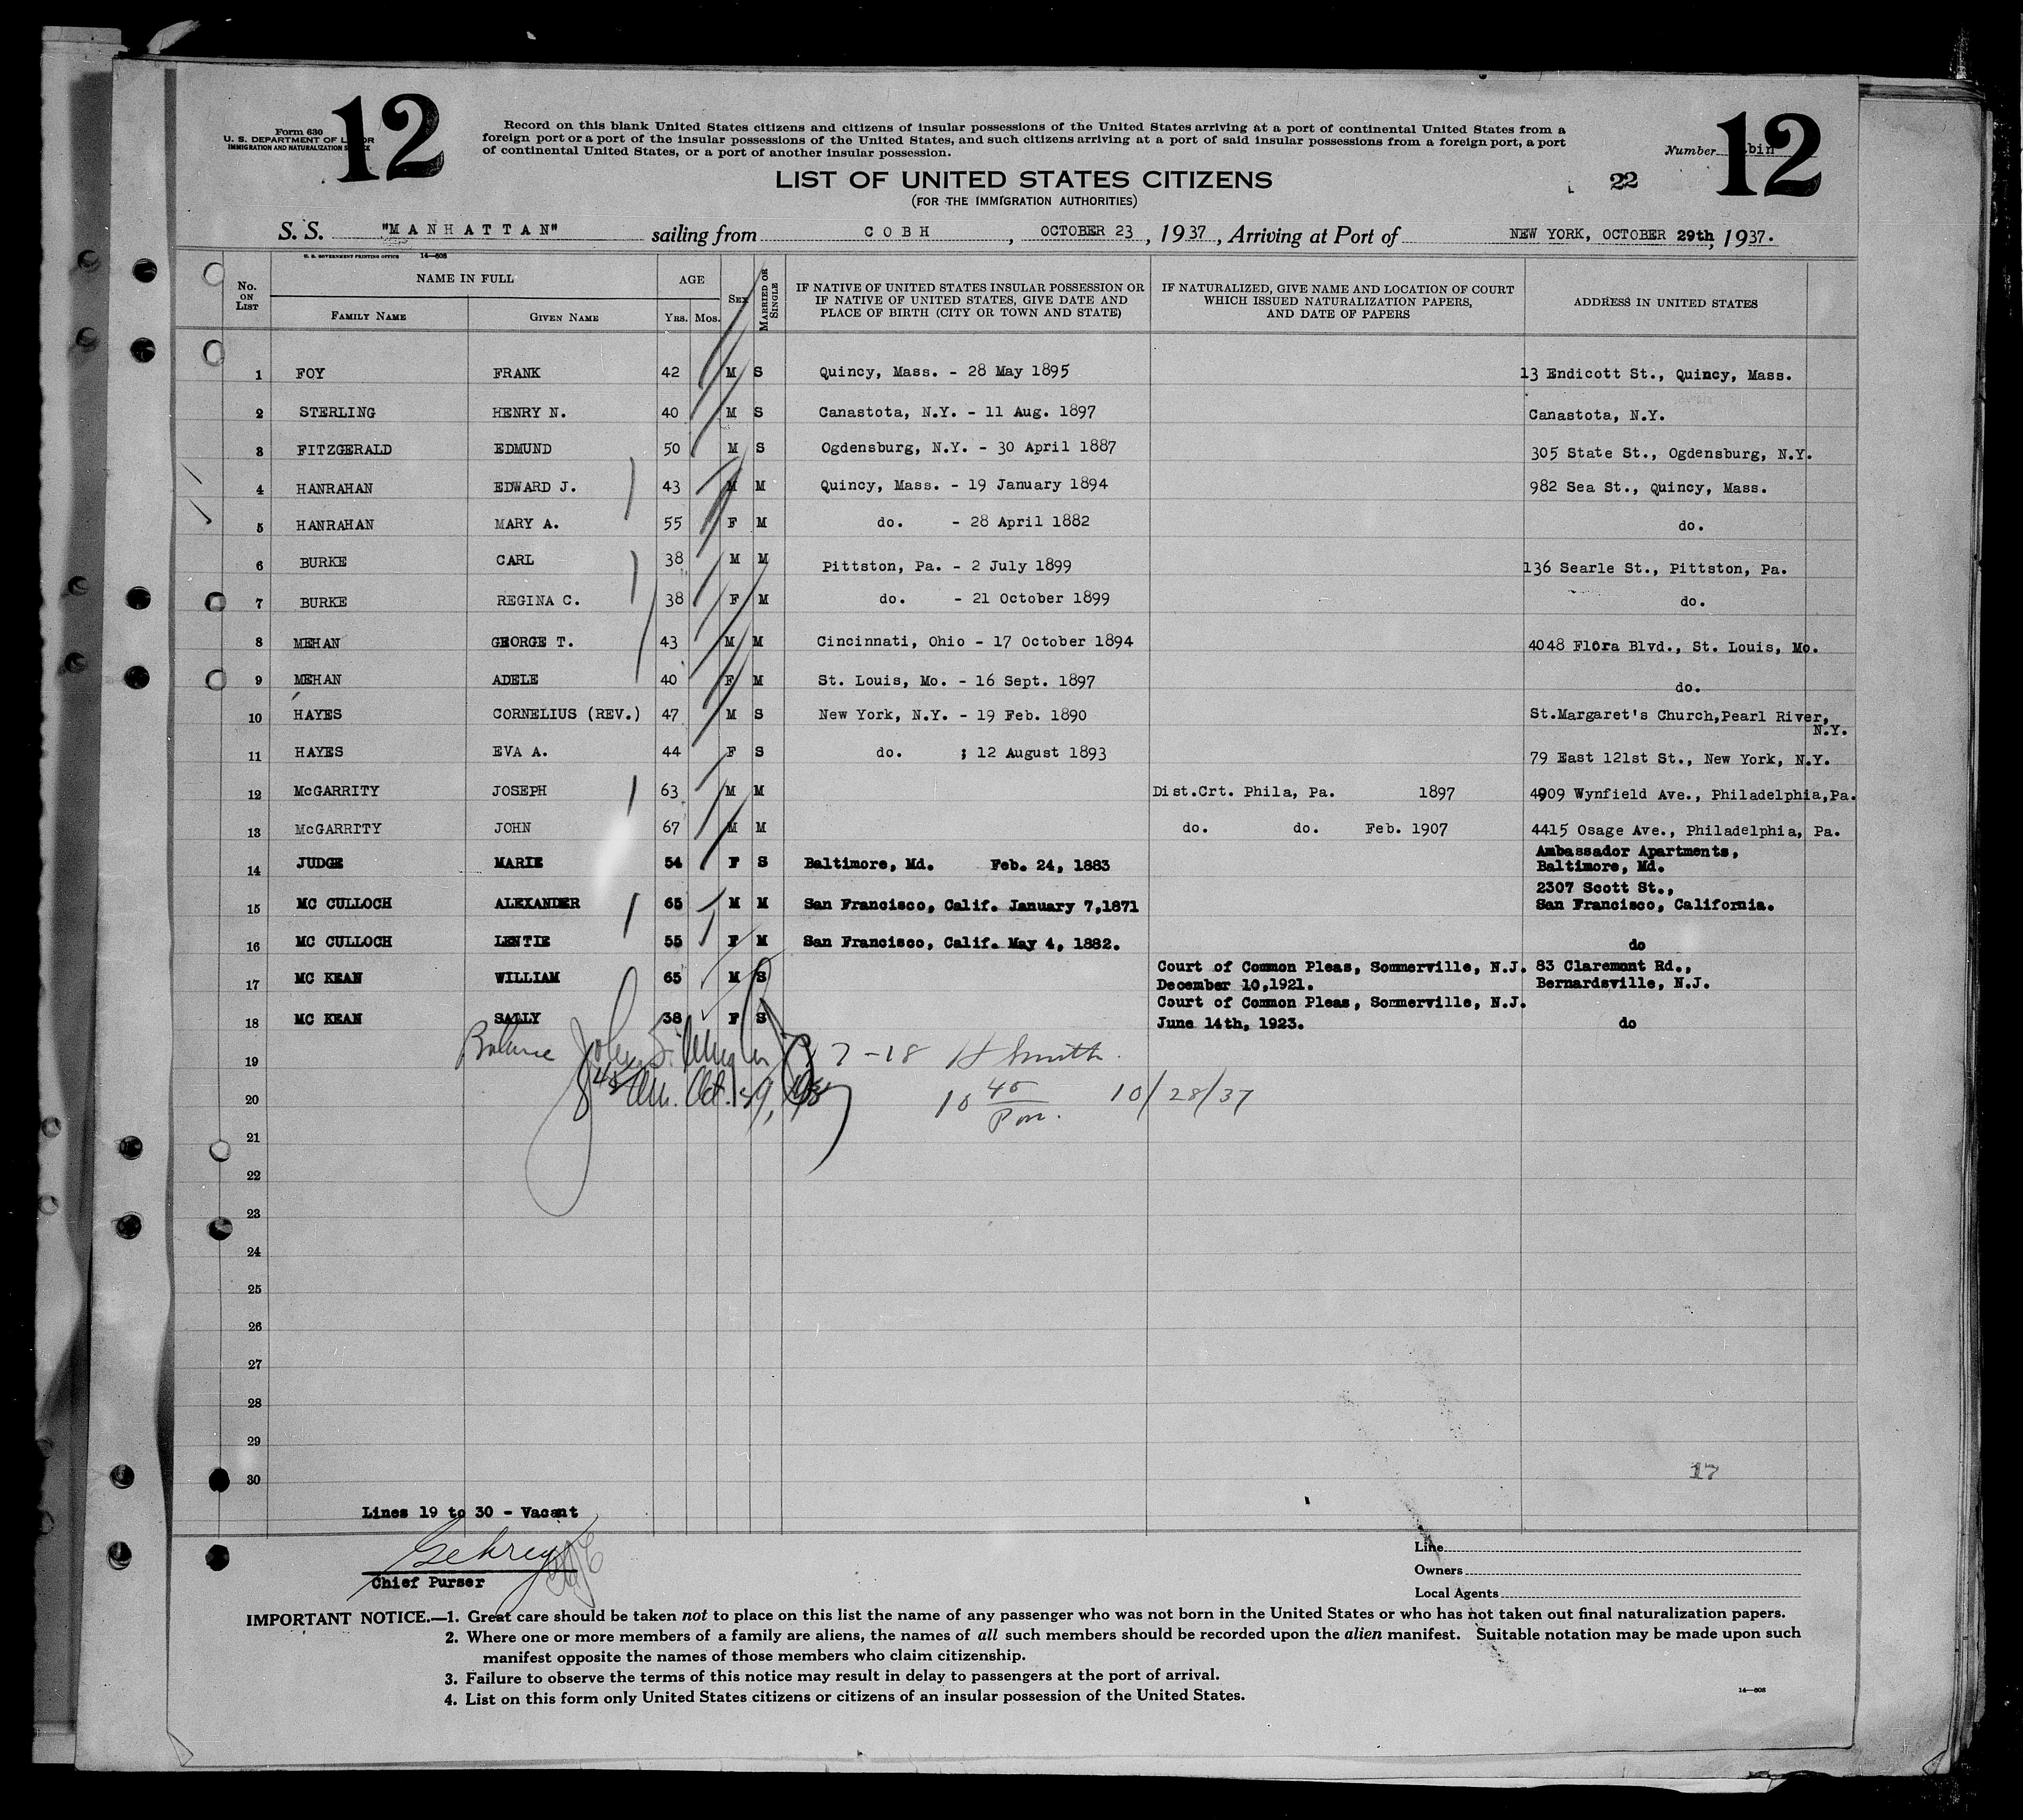 12
12
Form 630
U. S. DEPARTMENT OF L OR
IMMIGRATION AND NATURALIZATION S CE
Record on this blank United States citizens and citizens of insular possessions of the United States arriving at a port of continental United States from a
foreign port or a port of the insular possessions of the United States, and such citizens arriving at a port of said insular possessions from a foreign port, a port
of continental United States, or a port of another insular possession.
Number bin
LIST OF UNITED STATES CITIZENS
22
(FOR THE IMMIGRATION AUTHORITIES)
S. S. "MANHATTAN" sailing from COBH, OCTOBER 23, 1937, Arriving at Port of NEW YORK, OCTOBER 29th, 1937.
U. S. GOVERNMENT PRINTING OFFICE 14—808
No. ON LIST
NAME IN FULL
FAMILY NAME
GIVEN NAME
AGE
YRS. MOS.
SEX
MARRIED OR SINGLE
IF NATIVE OF UNITED STATES INSULAR POSSESSION OR
IF NATIVE OF UNITED STATES, GIVE DATE AND
PLACE OF BIRTH (CITY OR TOWN AND STATE)
IF NATURALIZED, GIVE NAME AND LOCATION OF COURT
WHICH ISSUED NATURALIZATION PAPERS,
AND DATE OF PAPERS
ADDRESS IN UNITED STATES
1 FOY FRANK 42 M S Quincy, Mass. - 28 May 1895 13 Endicott St., Quincy, Mass.
2 STERLING HENRY N. 40 M S Canastota, N.Y. - 11 Aug. 1897 Canastota, N.Y.
3 FITZGERALD EDMUND 50 M S Ogdensburg, N.Y. - 30 April 1887 305 State St., Ogdensburg, N.Y.
4 HANRAHAN EDWARD J. 43 M M Quincy, Mass. - 19 January 1894 982 Sea St., Quincy, Mass.
5 HANRAHAN MARY A. 55 F M do. - 28 April 1882 do.
6 BURKE CARL 38 M M Pittston, Pa. - 2 July 1899 136 Searle St., Pittston, Pa.
7 BURKE REGINA C. 38 F M do. - 21 October 1899 do.
8 MEHAN GEORGE T. 43 M M Cincinnati, Ohio - 17 October 1894 4048 Flora Blvd., St. Louis, Mo.
9 MEHAN ADELE 40 F M St. Louis, Mo. - 16 Sept. 1897 do.
10 HAYES CORNELIUS (REV.) 47 M S New York, N.Y. - 19 Feb. 1890 St.Margaret's Church,Pearl River,
N.Y.
11 HAYES EVA A. 44 F S do. ; 12 August 1893 79 East 121st St., New York, N.Y.
12 McGARRITY JOSEPH 63 M M Dist.Crt. Phila, Pa. 1897 4909 Wynfield Ave., Philadelphia,Pa.
13 McGARRITY JOHN 67 M M do. do. Feb. 1907 4415 Osage Ave., Philadelphia, Pa.
14 JUDGE MARIE 54 F S Baltimore, Md. Feb. 24, 1883 Ambassador Apartments,
Baltimore, Md.
15 MC CULLOCH ALEXANDER 65 M M San Francisco, Calif. January 7,1871 2307 Scott St.,
San Francisco, California.
16 MC CULLOCH LENTIE 55 F M San Francisco, Calif. May 4, 1882. do
17 MC KEAN WILLIAM 65 M S Court of Common Pleas, Sommerville, N.J. 83 Claremont Rd.,
December 10,1921. Bernardsville, N.J.
18 MC KEAN SALLY 38 F S Court of Common Pleas, Sommerville, N.J.
June 14th, 1923. do
19 John 7-18 H Smith
20 8 45 Am. Oct. 29, 10 45 Pm. 10/28/37
21
22
23
24
25
26
27
28
29
30
17
Lines 19 to 30 - Vacant
Gehrey
Chief Purser
Line
Owners
Local Agents
IMPORTANT NOTICE.—1. Great care should be taken not to place on this list the name of any passenger who was not born in the United States or who has not taken out final naturalization papers.
2. Where one or more members of a family are aliens, the names of all such members should be recorded upon the alien manifest. Suitable notation may be made upon such
manifest opposite the names of those members who claim citizenship.
3. Failure to observe the terms of this notice may result in delay to passengers at the port of arrival.
4. List on this form only United States citizens or citizens of an insular possession of the United States.
14—808